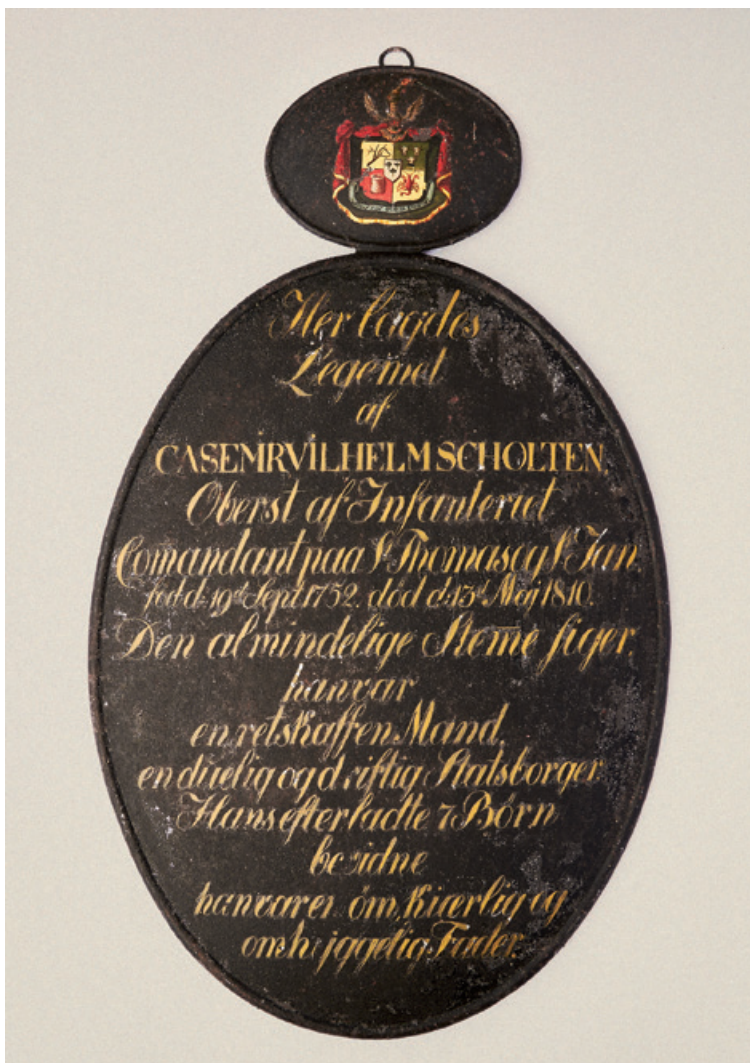 Her lagdes
Legemet
af
CASEMR VILHELM SCHOLTEN
Oberst af Infanteriet
Comandant paa St Thomas og St Jan.
fød d: 19de Sept 1752. død d: 13de Maj 1810.
Den almindelige Steme siger,
han var
en retskaffen Mand,
en duelig og driftig Statsborger
Hans efterladte 7 Børn
bevidne
han var en öm, Kiærlig og
omhyggelig Fader.